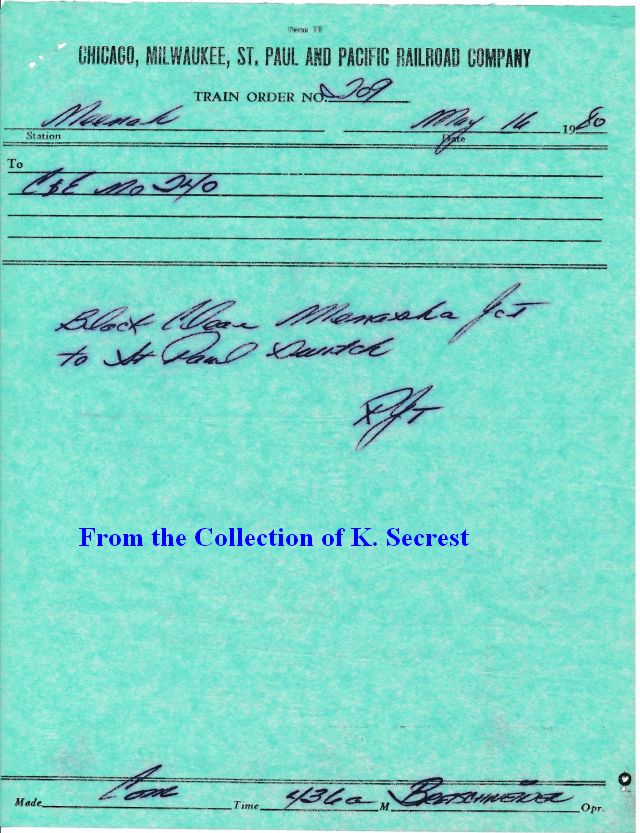 Form 19
CHICAGO, MILWAUKEE, ST. PAUL AND PACIFIC RAILROAD COMPANY
TRAIN ORDER NO. 209
Neenah May 16 1980
Station Date
To
C&E No 240
Block Clear Menasha Jct
to St Paul Switch
PJT
From the Collection of K. Secrest
Made Com Time 436a M Bretschneider Opr.